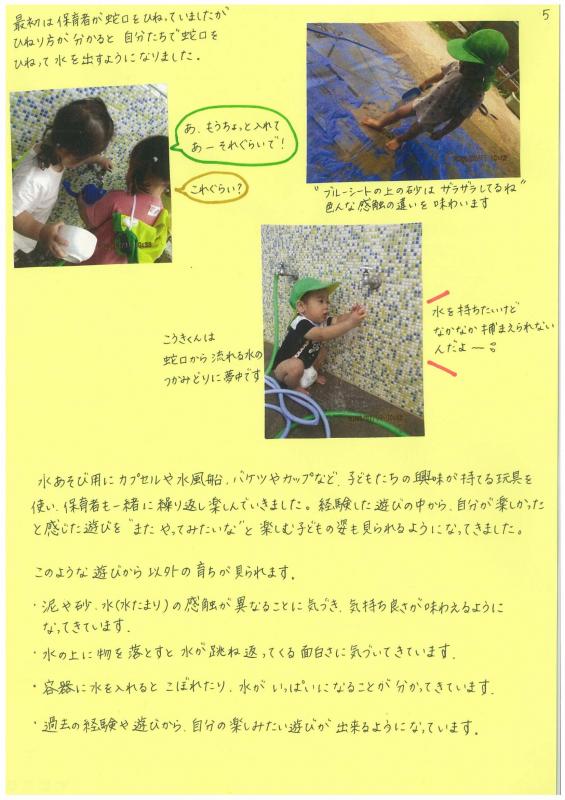 5
最初は保育者が蛇口をひねっていましたが
ひねり方が分かると自分たちで蛇口を
ひねって水を出すようになりました。
あ、もうちょっと入れて
あーそれぐらいで！
これぐらい？
"ブルーシートの上の砂はザラザラしてるね"
色んな感触の違いを味わいます
こうきくんは
蛇口から流れる水の
つかみどりに夢中です
水を持ちたいけど
なかなか捕まえられない
んだよ〜
水あそび用にカプセルや水風船、バケツやカップなど、子どもたちの興味が持てる玩具を
使い、保育者も一緒に繰り返し楽しんでいきました。経験した遊びの中から、自分が楽しかった
と感じた遊びを"またやってみたいな"と楽しむ子どもの姿も見られるようになってきました。
このような遊びから以外の育ちが見られます。
・泥や砂、水(水たまり)の感触が異なることに気づき、気持ち良さが味わえるように
なってきています。
・水の上に物を落とすと水が跳ね返ってくる面白さに気づいてきています。
・容器に水を入れるとこぼれたり、水がいっぱいになることが分かってきています。
・過去の経験や遊びから、自分の楽しみたい遊びが出来るようになっています。